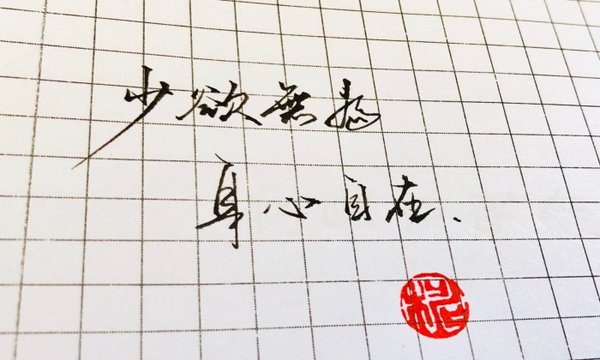 少欲無為
身心自在.